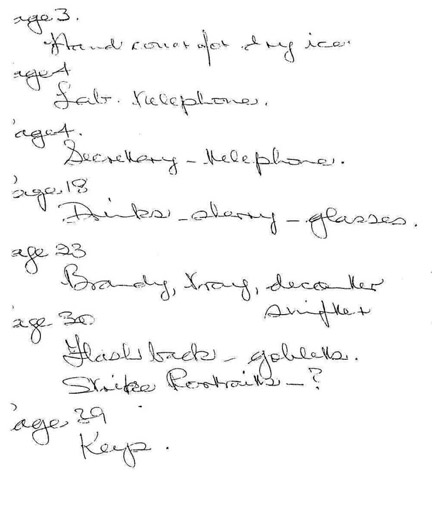 age 3.
Hand cover for dry ice.
age 4
Lab. telephone.
age 4.
Secretary - telephone.
age 18
Drinks - sherry - glasses.
age 23
Brandy, tray, decanter
age 30
Flashback - goblets.
Strike Portraits - ?
age 39
Keys.